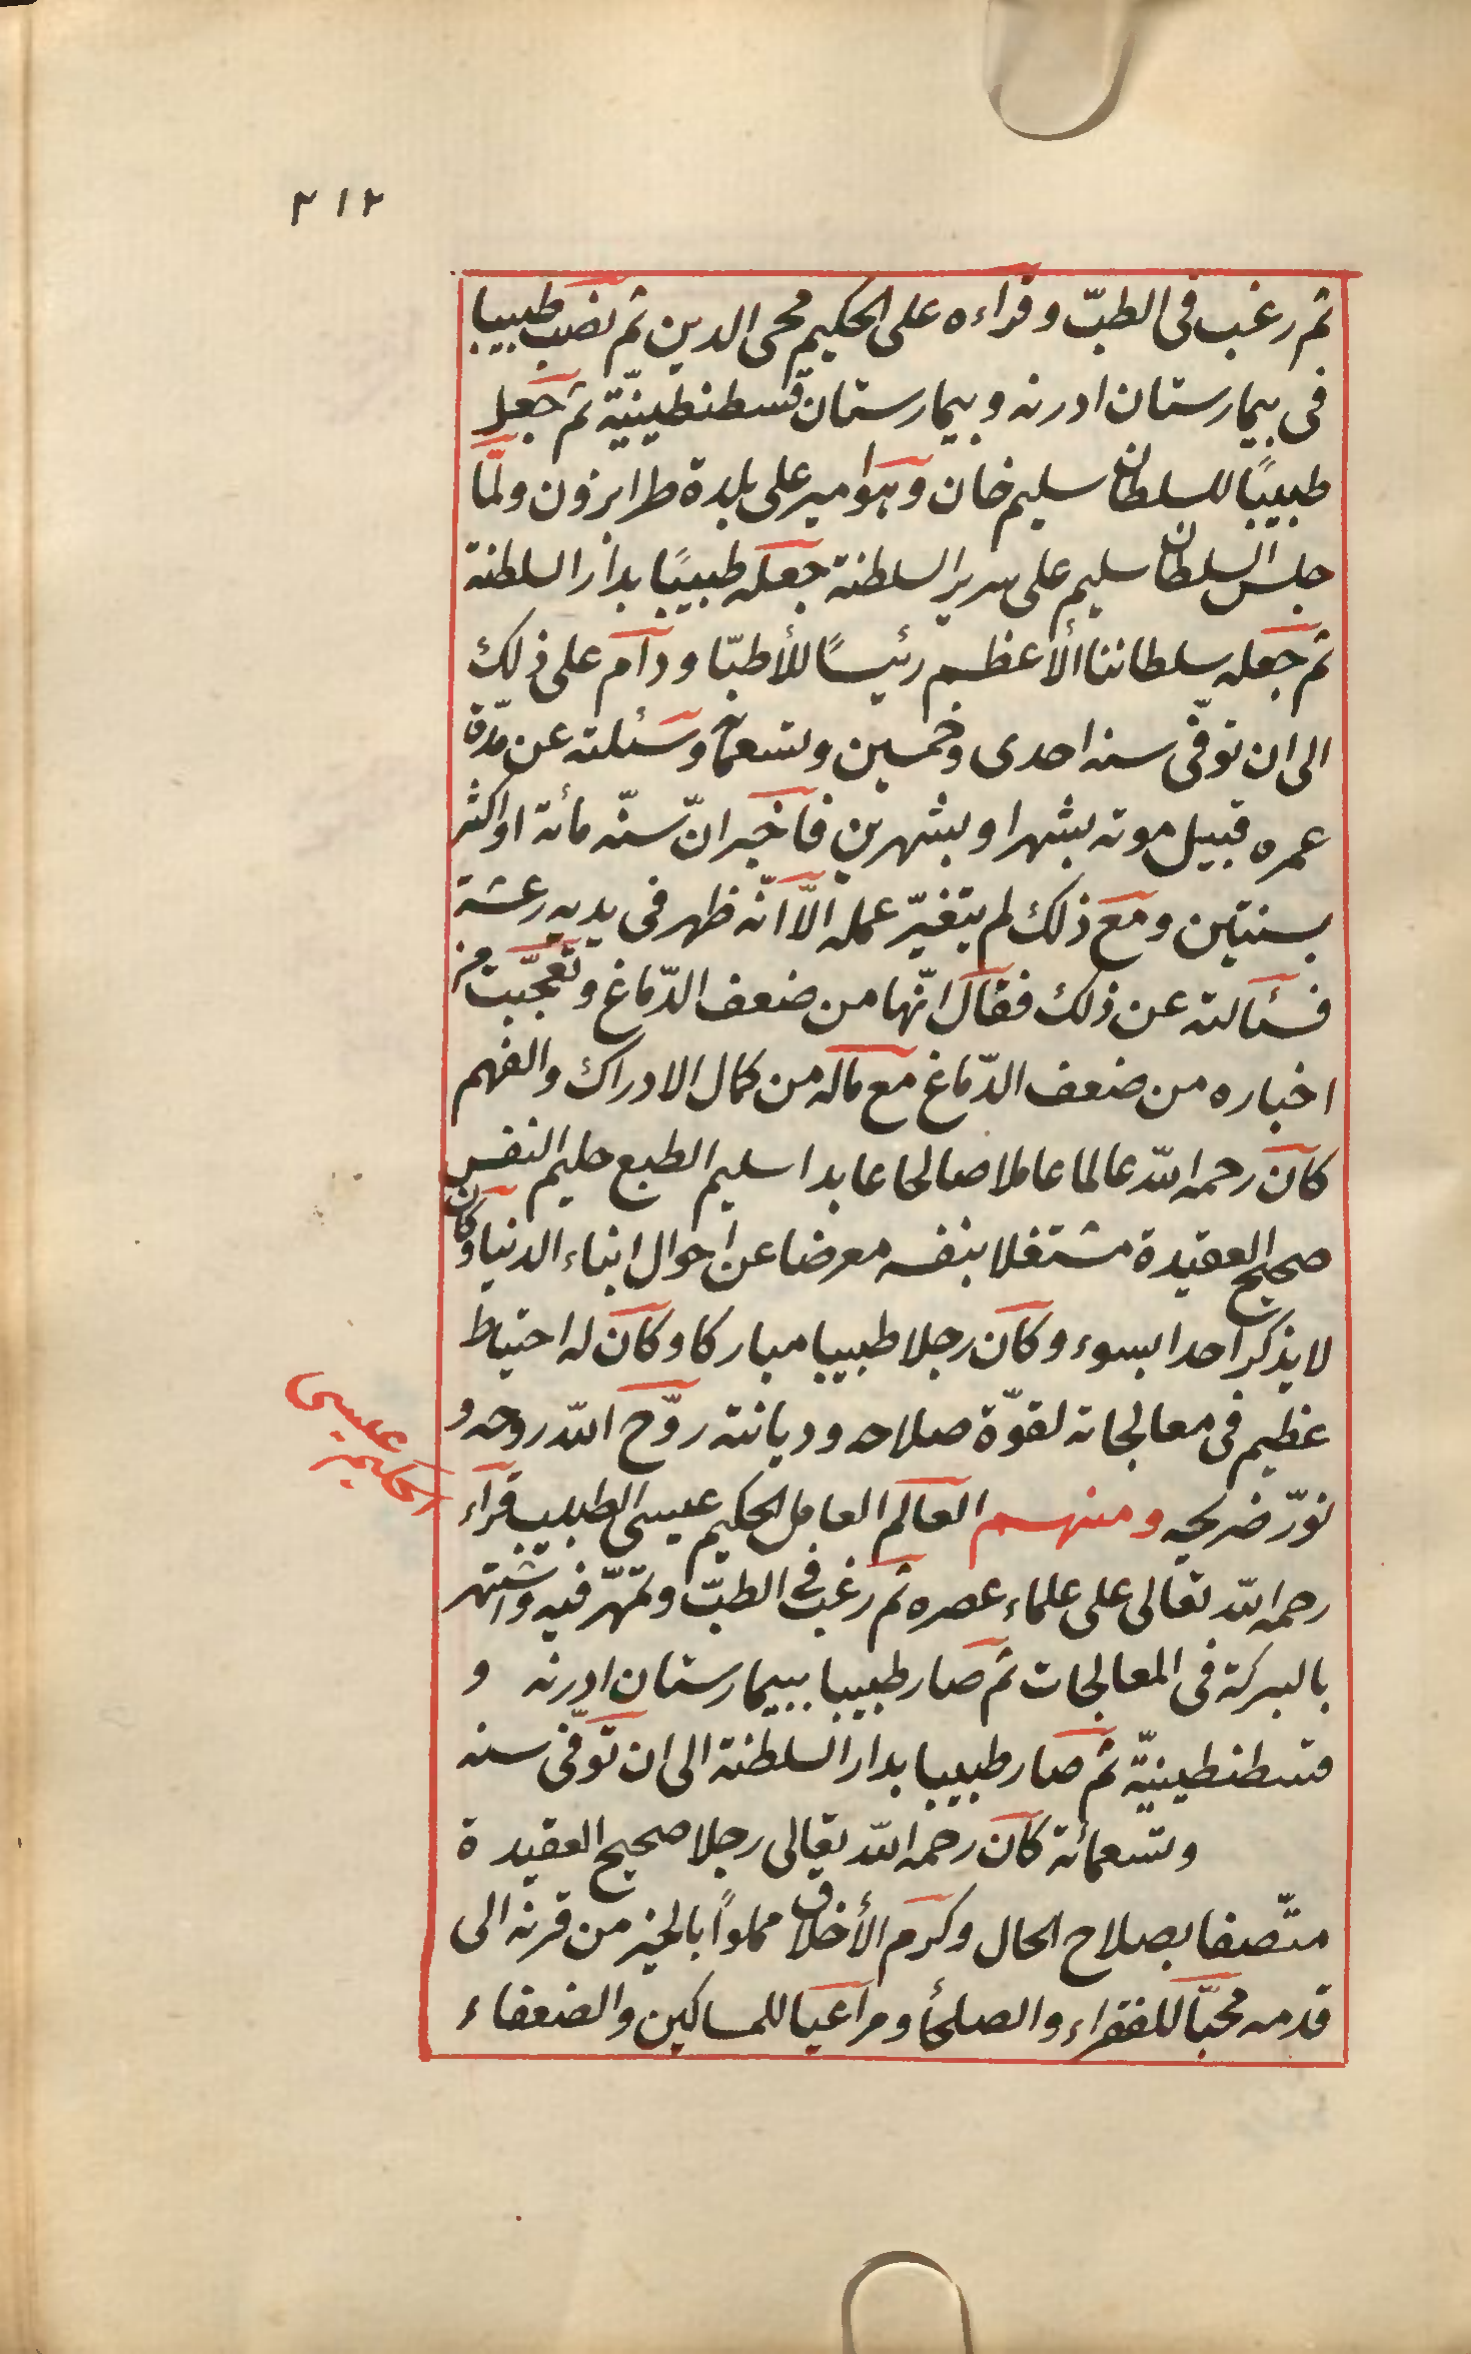 ٢١٢
ثم رغب فى الطبّ وقراءه على الحكيم محى الدين ثم نصب طبيبا
فى بيمارستان ادرنه وبيمارستان قسطنطينيّة ثم جعل
طبيبًا للسلطان سليم خان وهو امير على بلدة طرابزون ولمّا
جلس السلطان سليم على سرير السلطنة جعله طبيبًا بدار السلطنة
ثم جعله سلطاننا الأعظم رئيسًا للأطبّا ودام على ذلك
الى ان توفّى سنه احدى وخمسين وتسعمائة وسئلته عن مدّة
عمره قبيل موته بشهر او بشهرين فاخبر انّ سنّه مائة او اكثر
بسنتين ومع ذلك لم يتغيّر عمله الّا انّه ظهر فى يديه رعشة
فسئالته عن ذلك فقال انّها من ضعف الدّماغ وتعجّبت من
اخباره من ضعف الدّماغ مع ماله من كمال الادراك والفهم
كان رحمه اللّه عالما عاملا صالحا عابدا سليم الطبع حليم النفس
صحيح العقيدة مشتغلا بنفسه معرضا عن احوال ابناء الدنيا وكان
لا يذكر احدا بسوء وكان رجلا طبيبا مباركا وكان له احتياط
عظيم فى معالجاته لقوّة صلاحه وديانته روّح اللّه روحه و
نوّر ضريحه ومنهم العالم العامل الحكيم عيسى الطبيب قراء
الحكيم عيسى
رحمه اللّه تعالى على علماء عصره ثم رغب فى الطبّ وتمهّر فيه واشتهر
بالبركة فى المعالجات ثم صار طبيبا ببيمارستان ادرنه و
قسطنطينيّة ثم صار طبيبا بدار السلطنة الى ان توّفى سنه
وتسعمائة كان رحمه اللّه تعالى رجلا صحيح العقيدة
متّصفا بصلاح الحال وكرم الأخلاق مملوًا بالخير من قرنه الى
قدمه محبّا للفقراء والصلحأ ومراعيا للمساكين والضعفاء